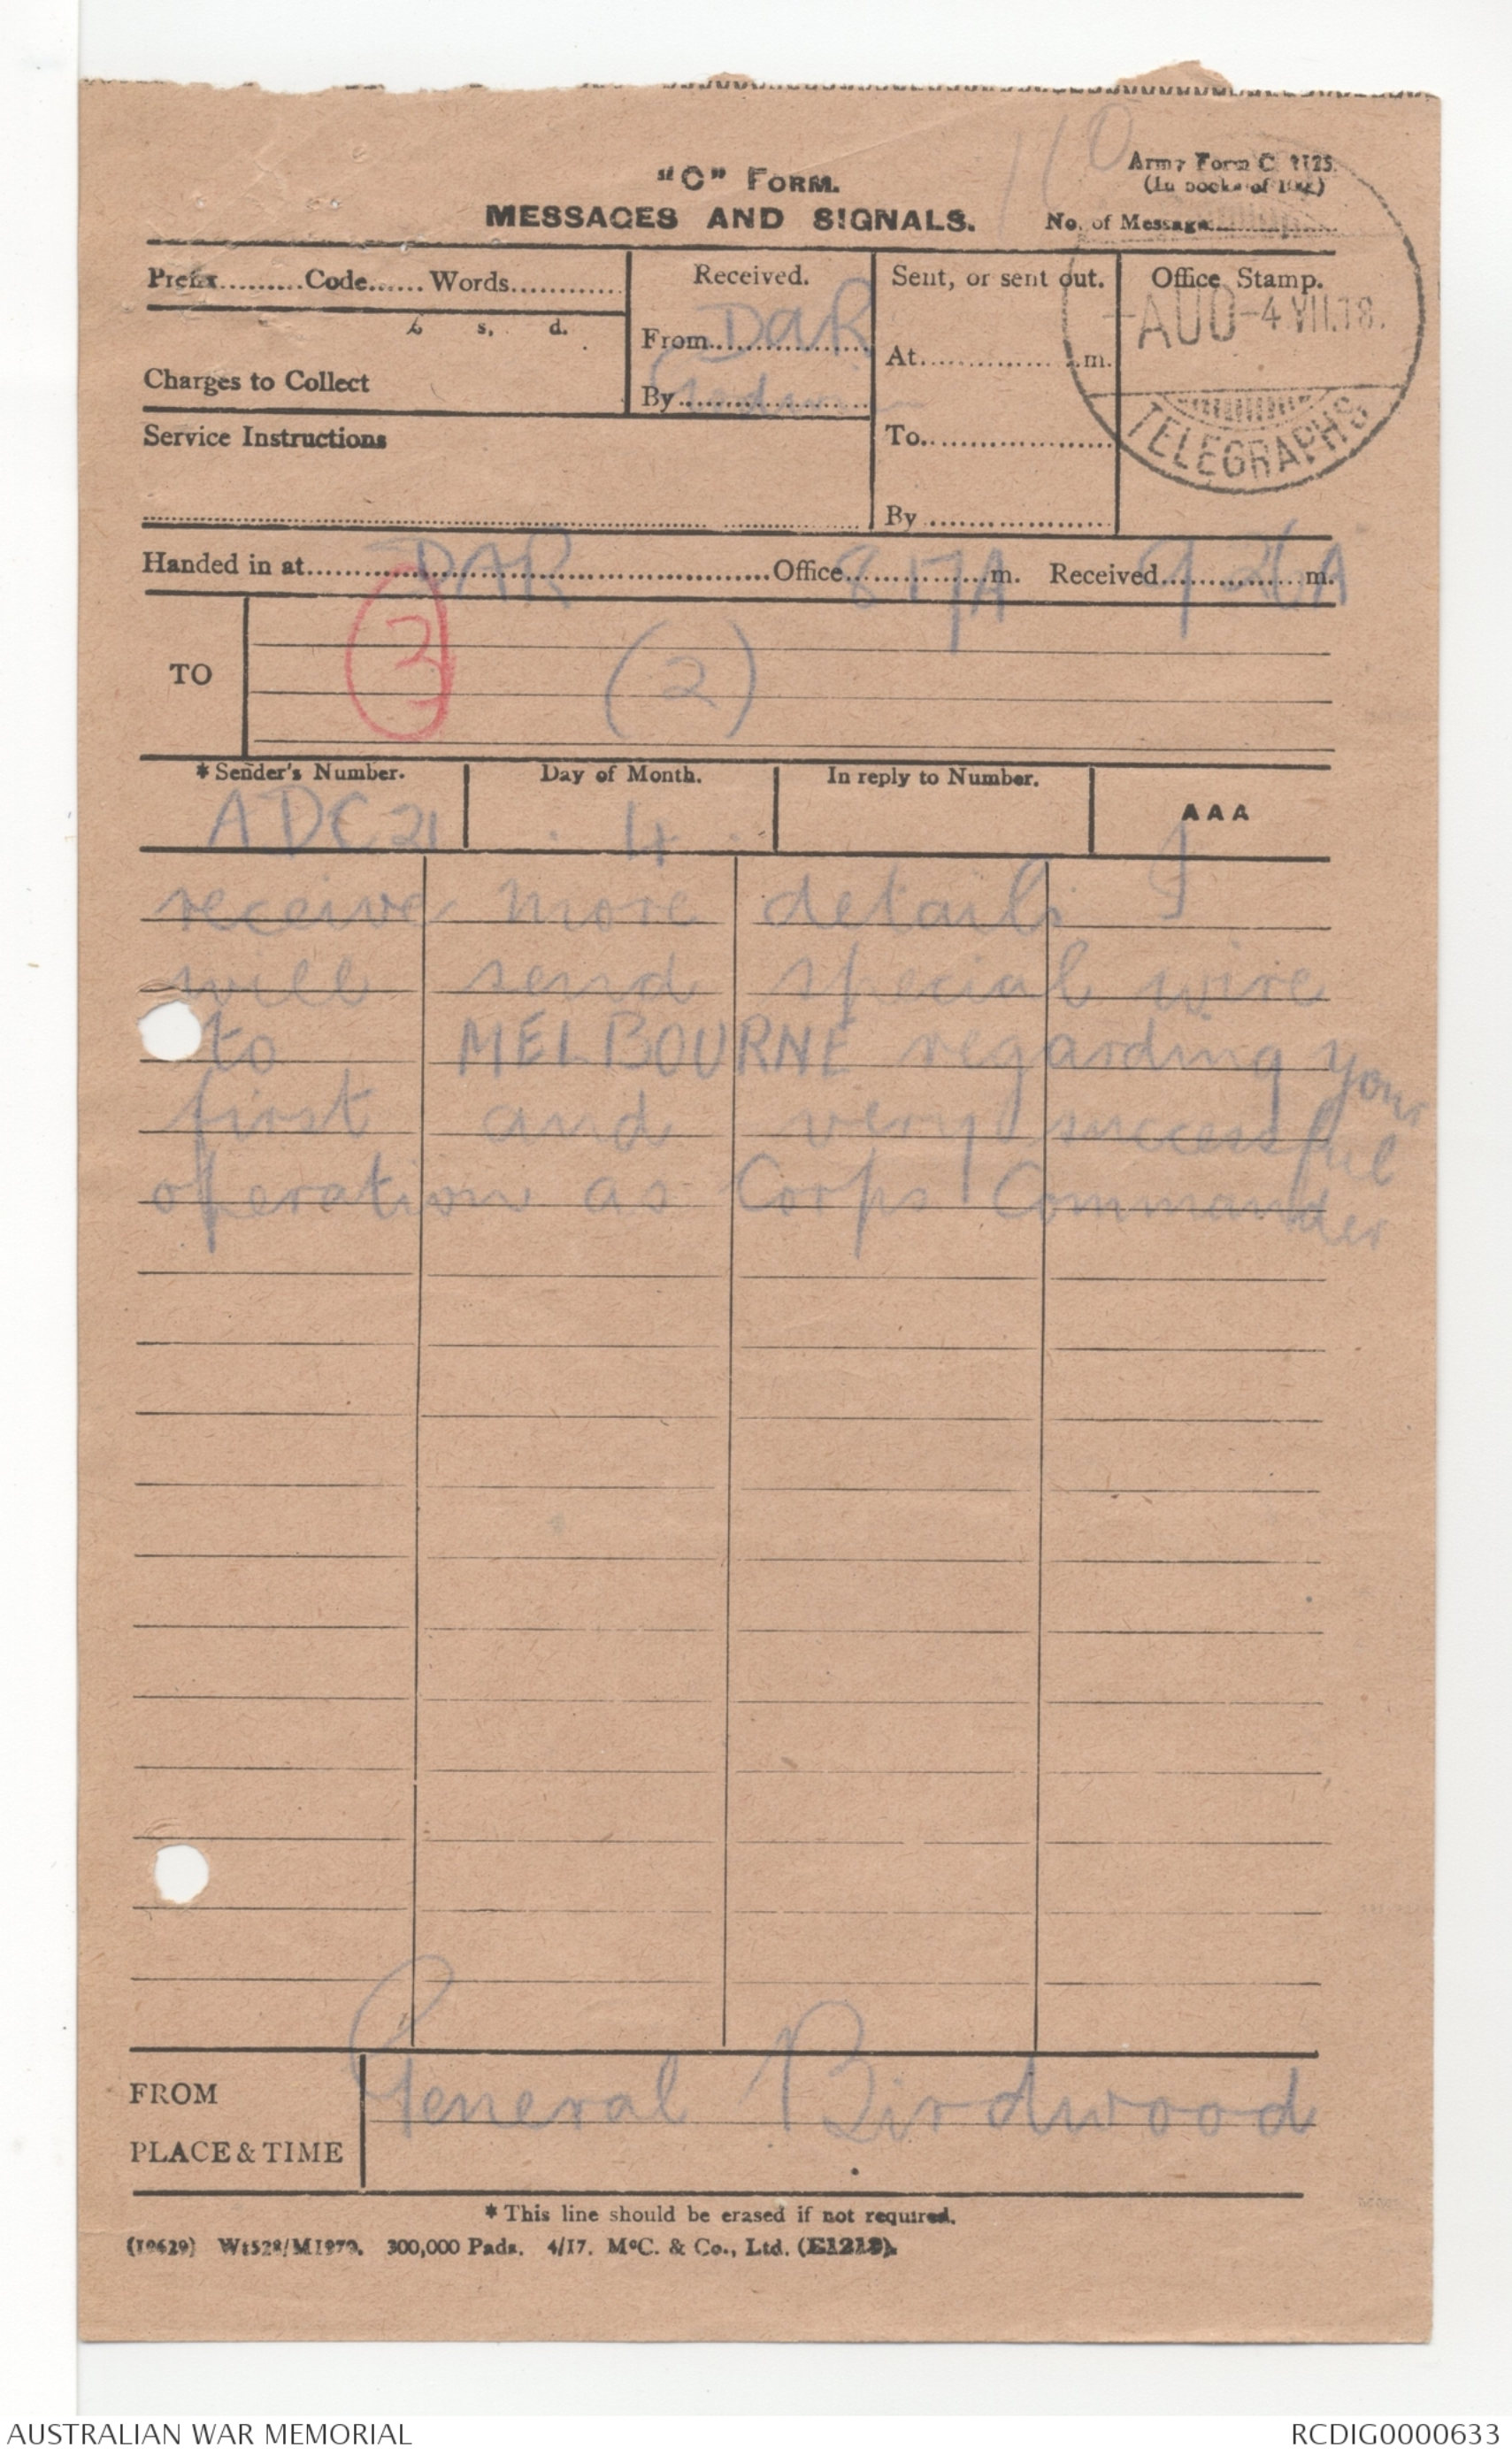 110
"C" FORM.
MESSAGES AND SIGNALS.
Army Form C. 2125.
(In books of 100.)
No. of Message
Prefix.........Code......Words............
£ s. d.
Charges to Collect
Service Instructions
Received.
From DAR
By
Sent, or sent out.
At...............m.
To
By
Office Stamp.
AUO -4.VII.18.
TELEGRAPHS
Handed in at DAR Office 817A m. Received 926A m.
TO
3 (2)
*Sender's Number.
ADC21
Day of Month.
4
In reply to Number.
AAA
receive more details I
will send special wire
to MELBOURNE regarding your
first and very successful
operation as Corps Commander
FROM
General Birdwood
PLACE & TIME
*This line should be erased if not required.
(19629) Wt528/M1970. 300,000 Pads. 4/17. McC. & Co., Ltd. (E1213).
AUSTRALIAN WAR MEMORIAL
RCDIG0000633